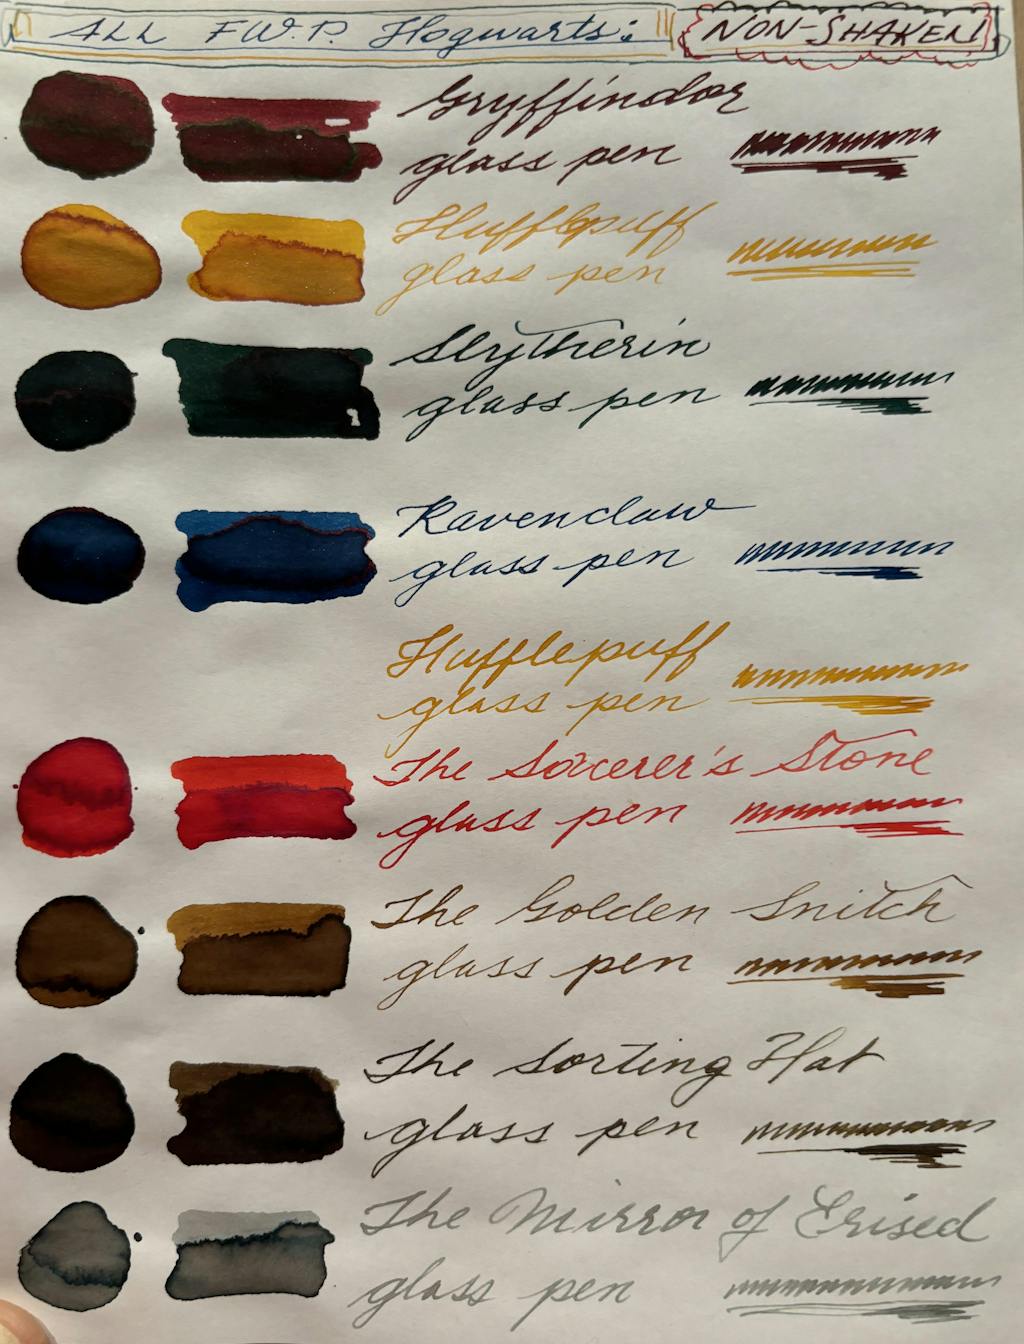 ALL F.W.P. Hogwarts: NON-SHAKEN!
Gryffindor
glass pen
Hufflepuff
glass pen
Slytherin
glass pen
Ravenclaw
glass pen
Hufflepuff
glass pen
The Sorcerer's Stone
glass pen
The Golden Snitch
glass pen
The Sorting Hat
glass pen
The Mirror of Erised
glass pen